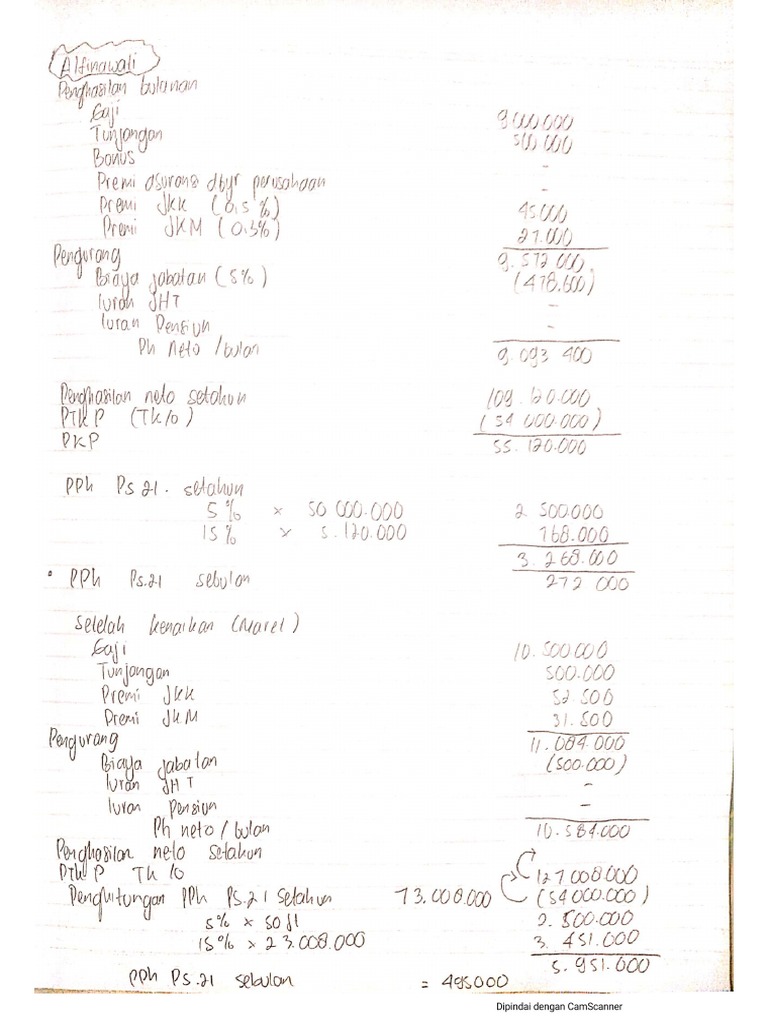 Alfinawati
Penghasilan bulanan
Gaji 9.000.000
Tunjangan 500.000
Bonus -
Premi asurans dbyr perusahaan -
Premi JKK (0,5%) 45.000
Premi JKM (0,3%) 27.000
9.572.000
Pengurang
Biaya jabatan (5%) (478.600)
Iuran JHT -
Iuran Pensiun -
Ph Neto /bulan 9.093.400
Penghasilan neto setahun 109.120.000
PTKP (TK/0) (54.000.000)
PKP 55.120.000
PPh Ps 21. setahun
5% x 50.000.000 2.500.000
15% x 5.120.000 768.000
3.268.000
• PPh Ps.21 sebulan 272.000
Setelah kenaikan (Maret)
Gaji 10.500.000
Tunjangan 500.000
Premi JKK 52.500
Premi JKM 31.500
11.084.000
Pengurang
Biaya jabatan (500.000)
Iuran JHT -
Iuran Pensiun -
Ph neto / bulan 10.584.000
Penghasilan neto setahun 127.008.000
PTKP TK/0 (54.000.000)
Penghitungan PPh Ps.21 setahun 73.008.000
5% x 50 jt 2.500.000
15% x 23.008.000 3.451.000
5.951.000
PPh Ps.21 sebulan = 495.000
Dipindai dengan CamScanner